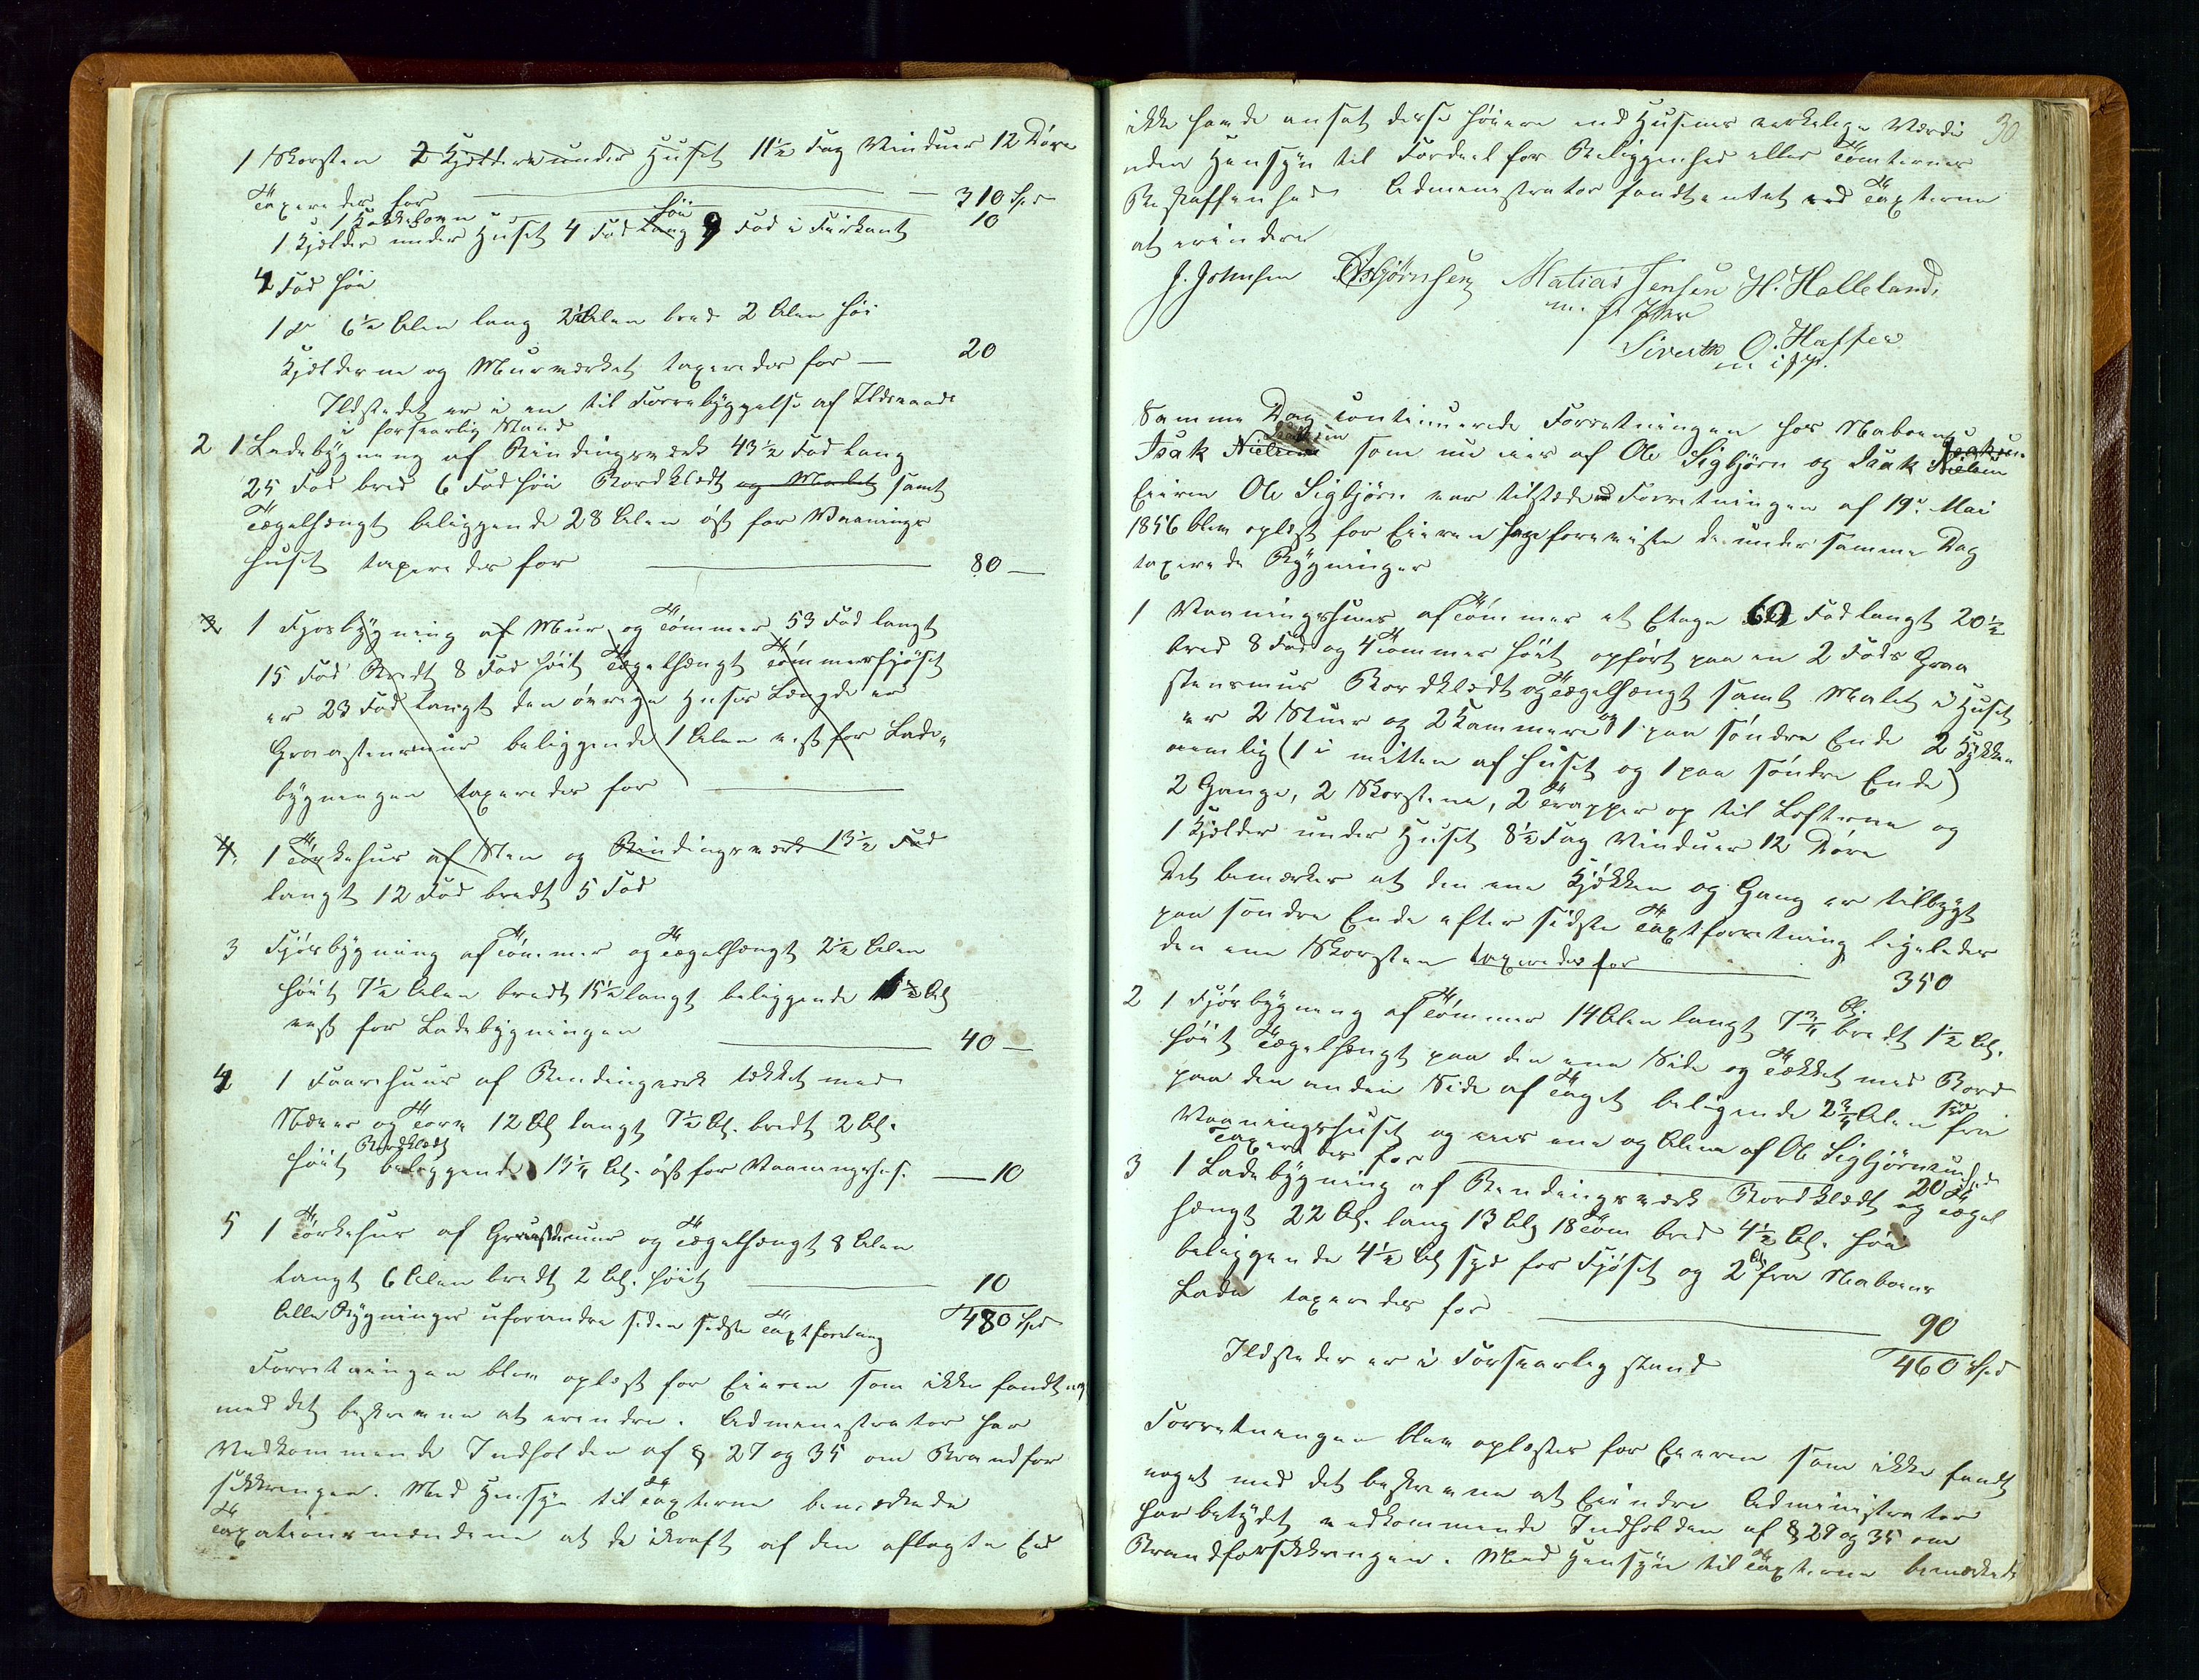 1 Skorsten 2 Kjeldere under Huset 11½ Fag Vinduer 12 Döre
Taxeredes for 310 Spd
1 Kakkelovn 10
1 Kjelder under Huset 4 Fod Lang höi 9 Fod i Firkant
4 Fod höi
1 do 6½ Alen lang 2½ Alen bred 2 Alen höi
Kjelderne og Murværket taxeredes for — 20
Ildstedet er i en til Forrebyggelse af Ildsvaade
i forsvarlig Stand
2 1 Ladebygning af Bindingsværk 43½ Fod Lang
25 Fod bred 6 Fod höi Bordklædt og Malet samt
Tægelhængt beliggende 28 Alen öst for Vaanings
huset taxeredes for 80 —
3 1 Fjosbygning af Mur og Tömmer 53 Fod langt
15 Fod Bredt 8 Fod höit Tægelhængt Tömmerfjöset
er 23 Fod langt den övrige Huses Længde er
Graastensmuur beliggende 1 Alen vest for Lade-
bygningen taxeredes for
4. 1 Törkehus af Sten og Bindingsværk 13½ Fod
langt 12 Fod bredt 5 Fod
3 Fjösbygning af Tömmer og Tægelhængt 2½ Alen
höit 7½ Alen bredt 15½ langt beliggende 1½ Al
vest for Ladebygningen 40 —
4 1 Faarehuus af Bindingværk tækket med
Næver og Torv 12 Al langt 7½ Al. bredt 2 Al.
höit Bordklædt beliggende 15¼ Al. öst for Vaaningshus. — 10
5 1 Törkehus af Graastenmuur og Tægelhængt 8 Alen
langt 6 Alen bredt 2 Al. höit 10
Alle Bygninger uforandre siden sidste Taxtforretning 480 Spd
Forretningen blev oplæst for Eieren som ikke fandt nog
med det beskrevne at erindre. Administrator har
Vedkommende Indholden af § 27 og 35 om Brandfor
sikkringen. Med Hensyn til Taxterne bemærkede
Taxationsmændene at de ikraft af den aflagte Eed
30
ikke havde ansat disse höiere end Husenes virkelige Værdi
uden Hensyn til Fordeel for Beliggenhed eller Tomternes
Beskaffenhed. Administrator fandt intet ved Taxterne
at erindre
J. Johnsen Asbjörnsen Matias Jensen H. Helleland,
m. f. Pen
Sivert O. Haffen
m i f P.
Samme Dag continuerede Forretningen hos Naboens
Isak Nielsen som nu eies af Ole Sigbjörn og Isak Nielsen
Eieren Ole Sigbjörn var tilstæde Forretningen af 19de Mai
1856 blev oplæst for Eieren foreviste de under samme Dag
taxerede Bygninger
1 Vaaningshuus af Tömmer et Etage 60 Fod langt 20½
bred 8 Fod og 4 Tommer höit opfört paa en 2 Fods Graa
stensmur Bordklædt og Tægelhængt samt Malet i Huset
er 2 Stuer og 2 Kammere og 1 paa söndre Ende 2 Kjökken
nemlig (1 i mitten af Huset og 1 paa söndre Ende)
2 Gange, 2 Skorstene, 2 Trapper op til Lofterne og
1 Kjelder under Huset 8½ Fag Vinduer 12 Döre
Det bemærkes at den ene Kjökken og Gang er tilbygt
paa söndre Ende efter sidste Taxtforretning ligeledes
den ene Skorsten taxeredes for 350
2 1 Fjösbygning af Tömmer 14 Alen langt 7¾ Al. bredt 1½ Al.
höit Tægelhængt paa den ene Side og Tækket med Bord
paa den anden Side af Taget beligende 2¾ Alen fra
Vaaningshuset og eies ene og Alene af Ole Sigbjörnsen
Taxeredes for 20 Spd
3 1 Ladebygning af Bindingsværk Bordklædt og Tægel
hængt 22 Al. lang 13 Al 18 Tom bred 4½ Al. höi
beliggende 4½ Al syd for Fjöset og 2 Al fra Naboens
Lade taxeredes for 90
Ildsteder er i Forsvarlig stand 460 Spd
Forretningen blev oplæstes for Eieren som ikke fandt
noget med det beskrevne at Erindre Administrator
har betydet vedkommende Indholden af § 27 og 35 om
Brandforsikkringen. Med Hensyn til Taxterne bemærkede